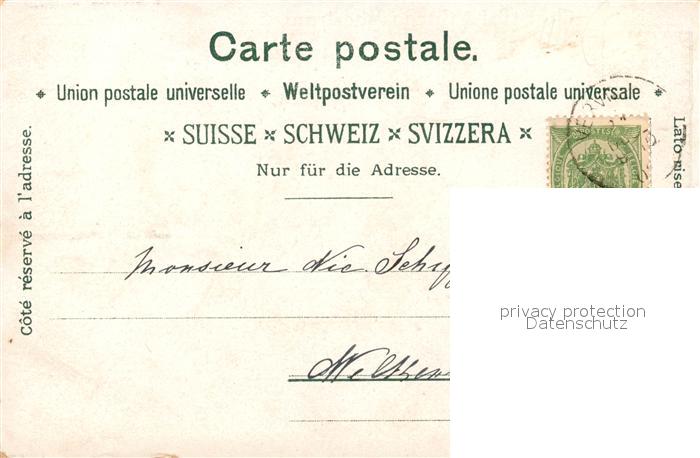 Carte postale.
* Union postale universelle * Weltpostverein * Unione postale universale *
× SUISSE × SCHWEIZ × SVIZZERA ×
Nur für die Adresse.
Côté réservé à l'adresse.
Lato rise
POSTES
Monsieur Nic. Schyf
privacy protection
Datenschutz